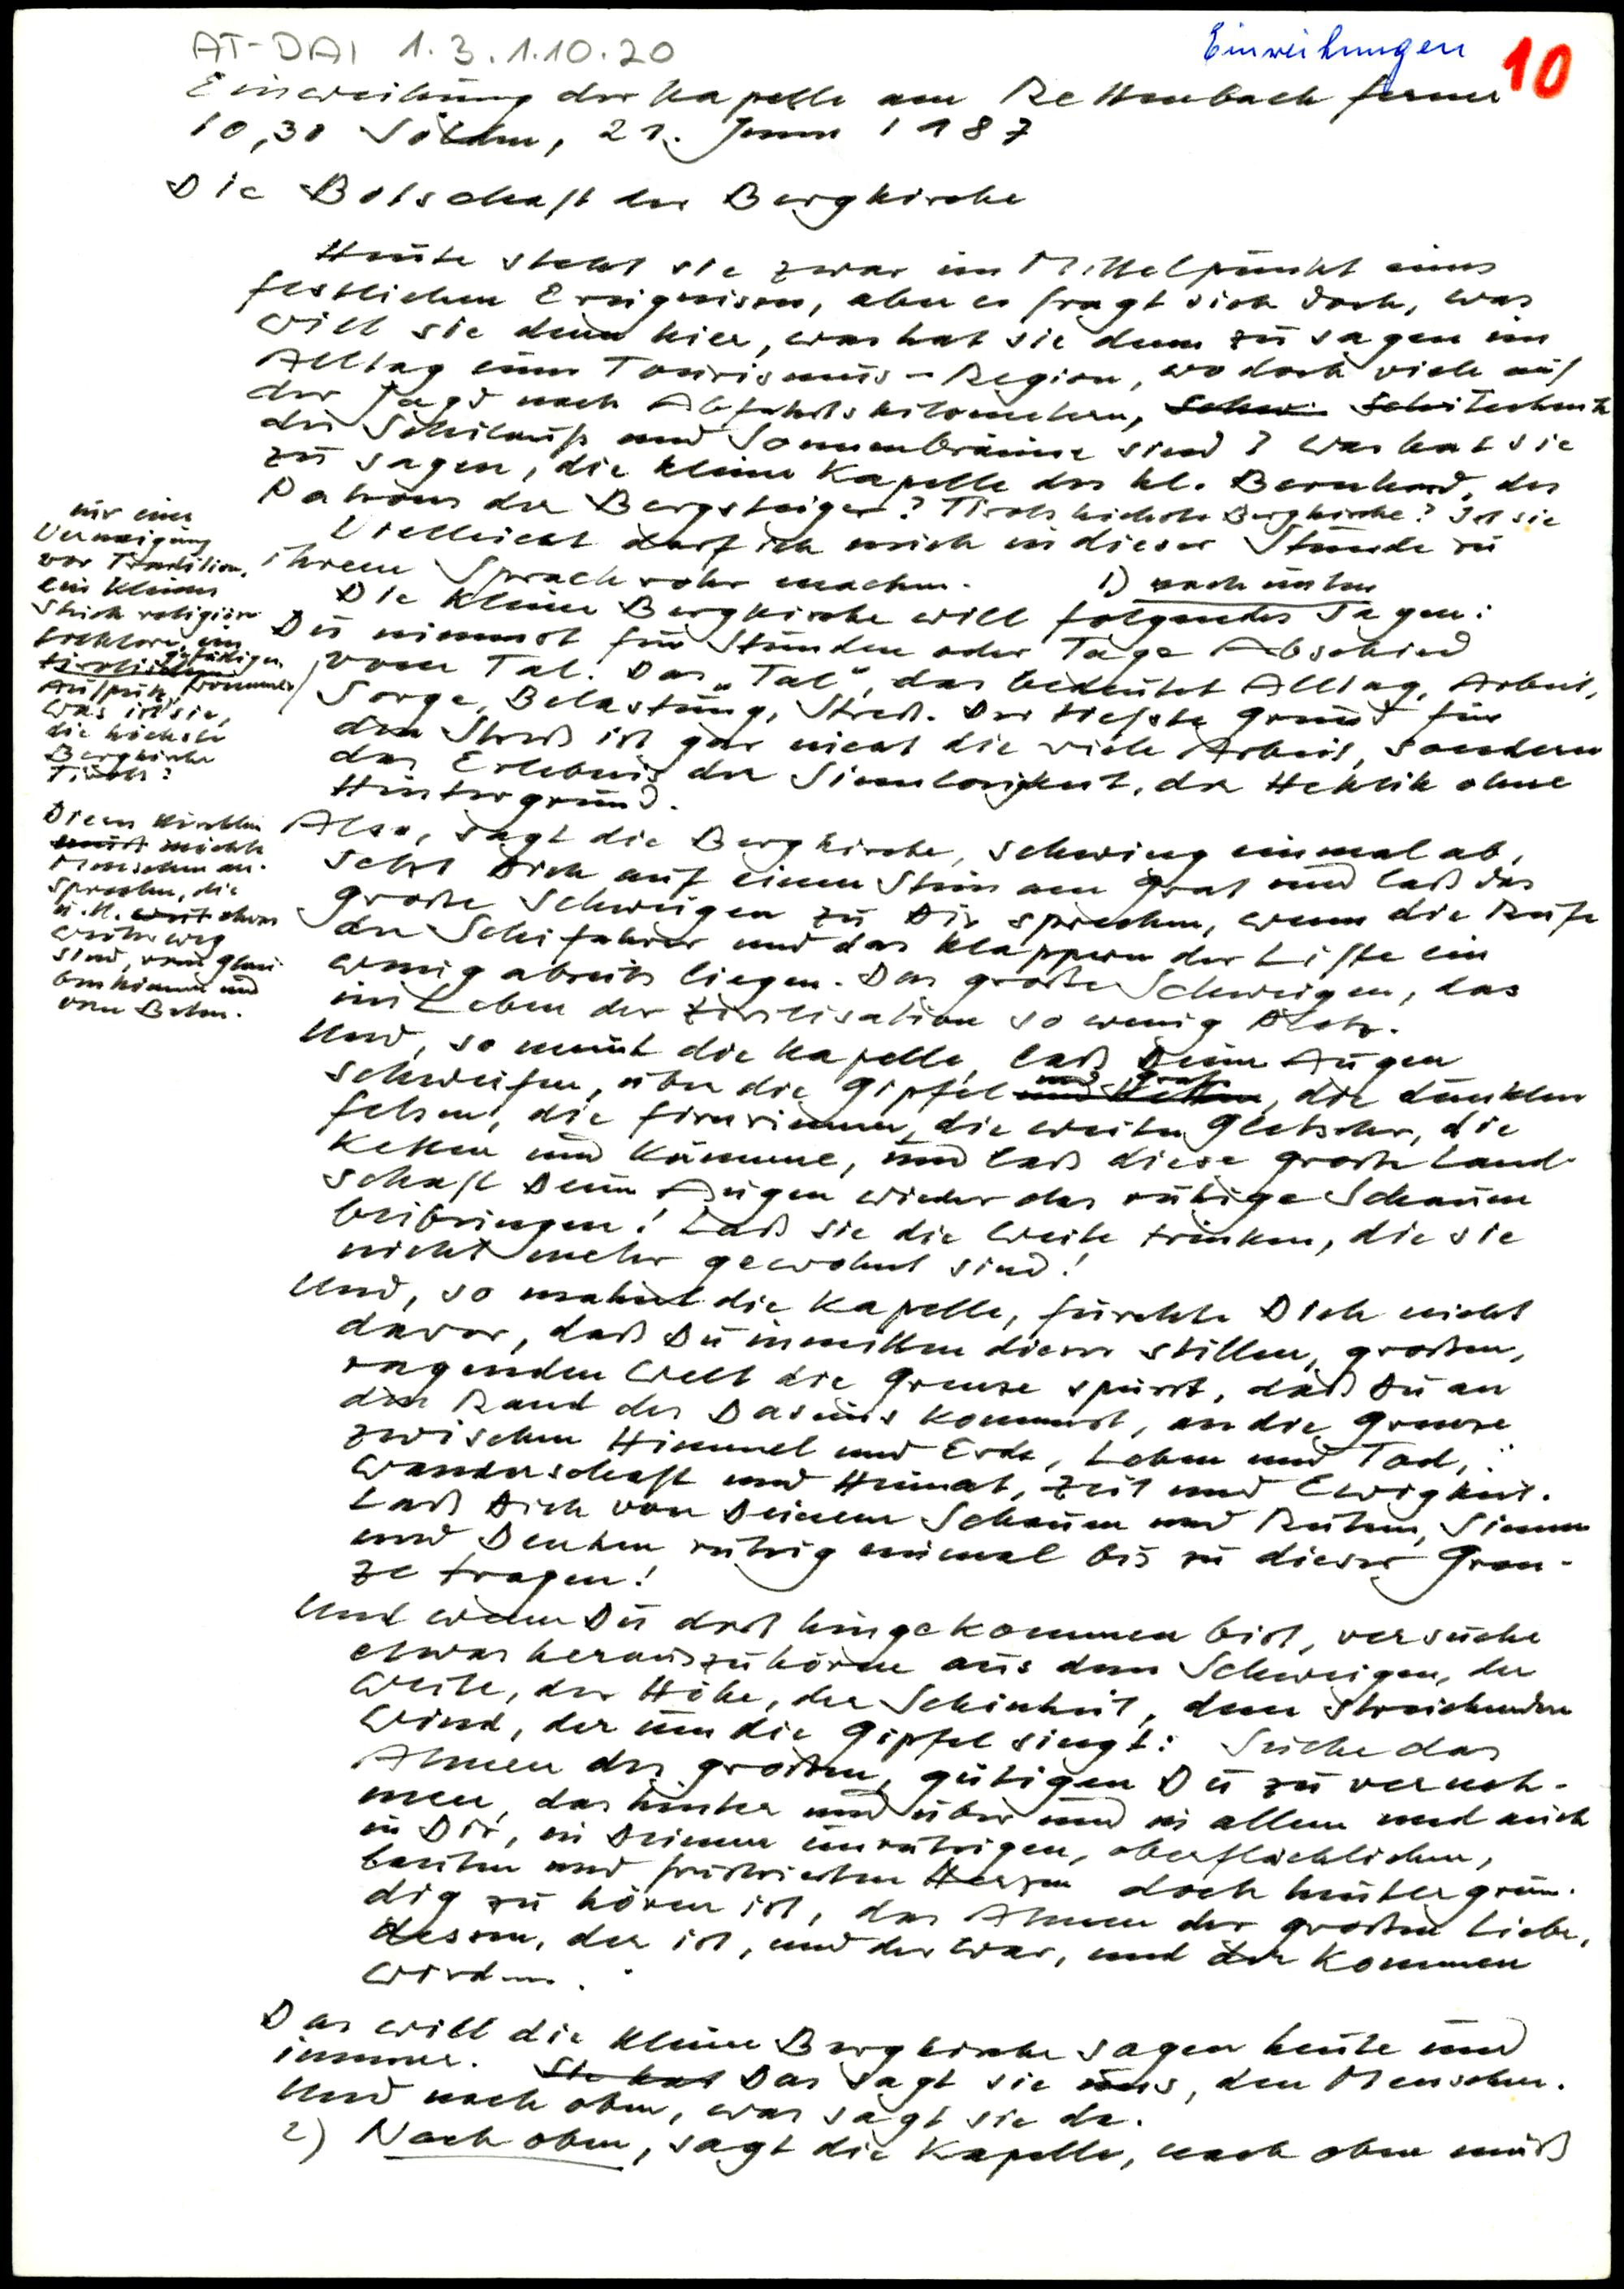 AT-DAI 1.3.1.10.20
Einweihungen
10
Einweihung der Kapelle am Rettenbach ferner
10,30 Sölden, 21. Juni 1987
Die Botschaft der Bergkirche
Heute steht sie zwar im Mittelpunkt eines
festlichen Ereignisses, aber es fragt sich doch, was
will sie denn hier, was hat sie denn zu sagen im
Alltag einer Tourismus-Region, wo doch viele auf
der Jagd nach Abfahrtskilometern, Schitechnik
und Sonnenbräune sind? Was hat sie
zu sagen, die kleine Kapelle des hl. Bernhard, des
Patrons der Bergsteiger? Tirols höchste Bergkirche? Ist sie
nur eine
Verneigung
vor Tradition,
ein kleiner
Strich religiöse
Folklore, ein
gefälliger
frommer
Aufputz,
was ist sie,
die höchste
Bergkirche
Tirols?
Dieses Kirchlein
möchte
Menschen an-
sprechen, die
u. U. etwas
weiter weg
sind, vom Glau-
ben können und
vom Beten.
Vielleicht darf ich mich in dieser Stunde zu
ihrem Sprachrohr machen.
1) nach unten
Die kleine Bergkirche will folgendes sagen:
Du nimmst für Stunden oder Tage Abschied
vom Tal. Das „Tal", das bedeutet Alltag, Arbeit,
Sorge, Belastung, Streß. Der tiefste Grund für
den Streß ist gar nicht die viele Arbeit, sondern
das Erlebnis der Sinnlosigkeit, der Hektik ohne
Hintergrund.
Also, sagt die Bergkirche, schwing einmal ab,
setz Dich auf einen Stein am Grat und laß das
große Schweigen zu Dir sprechen, wenn die Rufe
der Schifahrer und das Klappern der Lifte ein
wenig abseits liegen. Das große Schweigen, das
im Leben der Zivilisation so wenig Platz.
Und, so meint die Kapelle, laß Deine Augen
schweifen, über die Gipfel und Grate, die dunklen
Felsen, die Firnrinnen, die weiten Gletscher, die
Ketten und Kämme, und laß diese große Land-
schaft Deinen Augen wieder das ruhige Schauen
beibringen! Laß sie die Weite trinken, die sie
nicht mehr gewohnt sind!
Und, so mahnt die Kapelle, fürchte Dich nicht
davor, daß Du inmitten dieser stillen, großen,
ragenden Welt die Grenze spürst, daß Du an
den Rand des Daseins kommst, an die Grenze
zwischen Himmel und Erde, Leben und Tod,
Wanderschaft und Heimat, Zeit und Ewigkeit.
Laß Dich von Deinem Schauen und Ruhen, Sinnen
und Denken ruhig einmal bis zu dieser Gren-
ze tragen!
Und wenn Du dort hingekommen bist, versuche
etwas herauszuhören aus dem Schweigen, der
Weite, der Höhe, der Schönheit, dem streichenden
Wind, der um die Gipfel singt: Suche das
Atmen des großen, gütigen Du zu verneh-
men, das hinter und über und in allem und auch
in Dir, in Deinem unruhigen, oberflächlichen,
bunten und frustrierten Herzen doch hintergrün-
dig zu hören ist, das Atmen der großen Liebe,
dessen, der ist, und der war, und der kommen
wird.
Das will die kleine Bergkirche sagen heute und
immer. Sie hat Das sagt sie uns, den Menschen.
Und nach oben, was sagt sie da.
2) Nach oben, sagt die Kapelle, nach oben muß